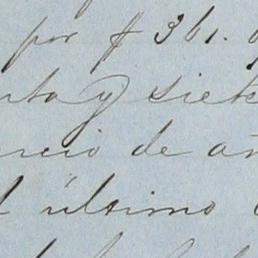 por $ 361.
nta y siete
ncio de añ
l último